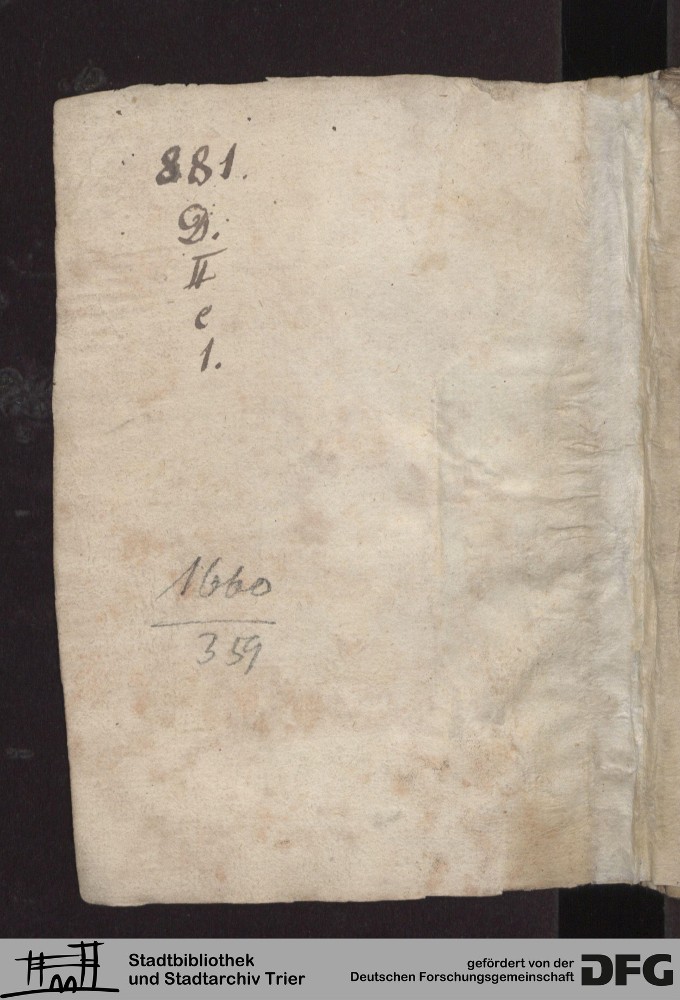 881.
D.
II
e
1.
1660
359
Stadtbibliothek
und Stadtarchiv Trier
gefördert von der
Deutschen Forschungsgemeinschaft
DFG